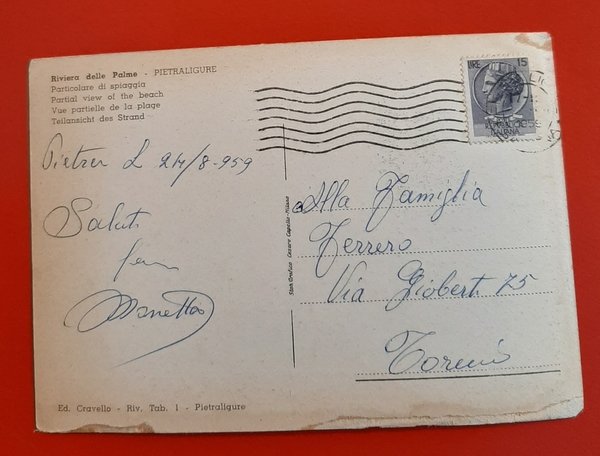 Riviera delle Palme - PIETRALIGURE
Particolare di spiaggia
Partial view of the beach
Vue partielle de la plage
Teilansicht des Strand
LIRE 15
ITALIANA
Pietra L 24/8-959
Saluti
Alla Famiglia
Ferrero
Via Gioberti 75
Torino
Stab. Grafico Cesare Capello - Milano
Ed. Cravello - Riv. Tab. 1 - Pietraligure